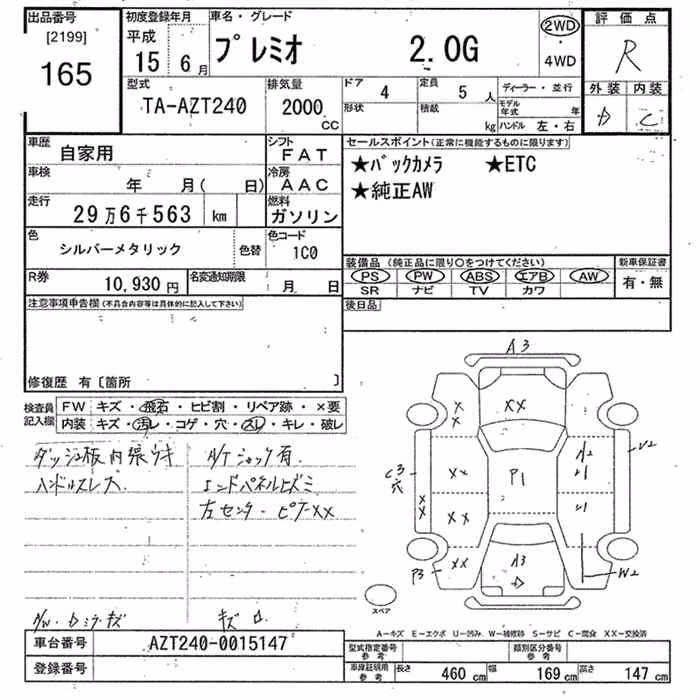 出品番号 初度登録年月 車名・グレード 2WD 評価点
[2199] 平成
165 15 6月 プレミオ 2.0G ・ R
4WD
型式 排気量 ドア 4 定員 5人 ディーラー・並行 外装 内装
TA-AZT240 2000 CC 形状 積載 kg モデル年式 年 D C
ハンドル 左・右
車歴 自家用 シフト FAT セールスポイント(正常に機能するものに限ります)
車検 年 月( 日) 冷房 AAC ★バックカメラ ★ETC
走行 29万6千563 km 燃料 ガソリン ★純正AW
色 シルバーメタリック 色替 色コード 1C0
装備品(純正品に限り○をつけてください) 新車保証書
R券 10,930円 名変通知期限 月 日 PS PW ABS エアB AW 有・無
SR ナビ TV カワ
注意事項申告欄(不具合内容等は具体的に記入して下さい) 後日品
修復歴 有〔箇所 〕
検査員記入欄 FW キズ・飛石・ヒビ割・リペア跡・×要
内装 キズ・汚レ・コゲ・穴・スレ・キレ・破レ
ダッシュ板内張りキ
ハンドルスレ大
ジャッキ有
エンドパネルヒズミ
左センターピラーXX
ミラーキズ
キズ
A3
XX
XX
P1
XX
XX
XX
XX
C3
穴
A2
U1
U1
U2
P3
A3
D
W2
スペア
A-キズ E-エクボ U-凹み W-補修跡 S-サビ C-腐食 XX-交換済
車台番号 AZT240-0015147 型式指定番号 参考 類別区分番号 参考
登録番号 車庫証明用 参考 長さ 460 cm 幅 169 cm 高さ 147 cm